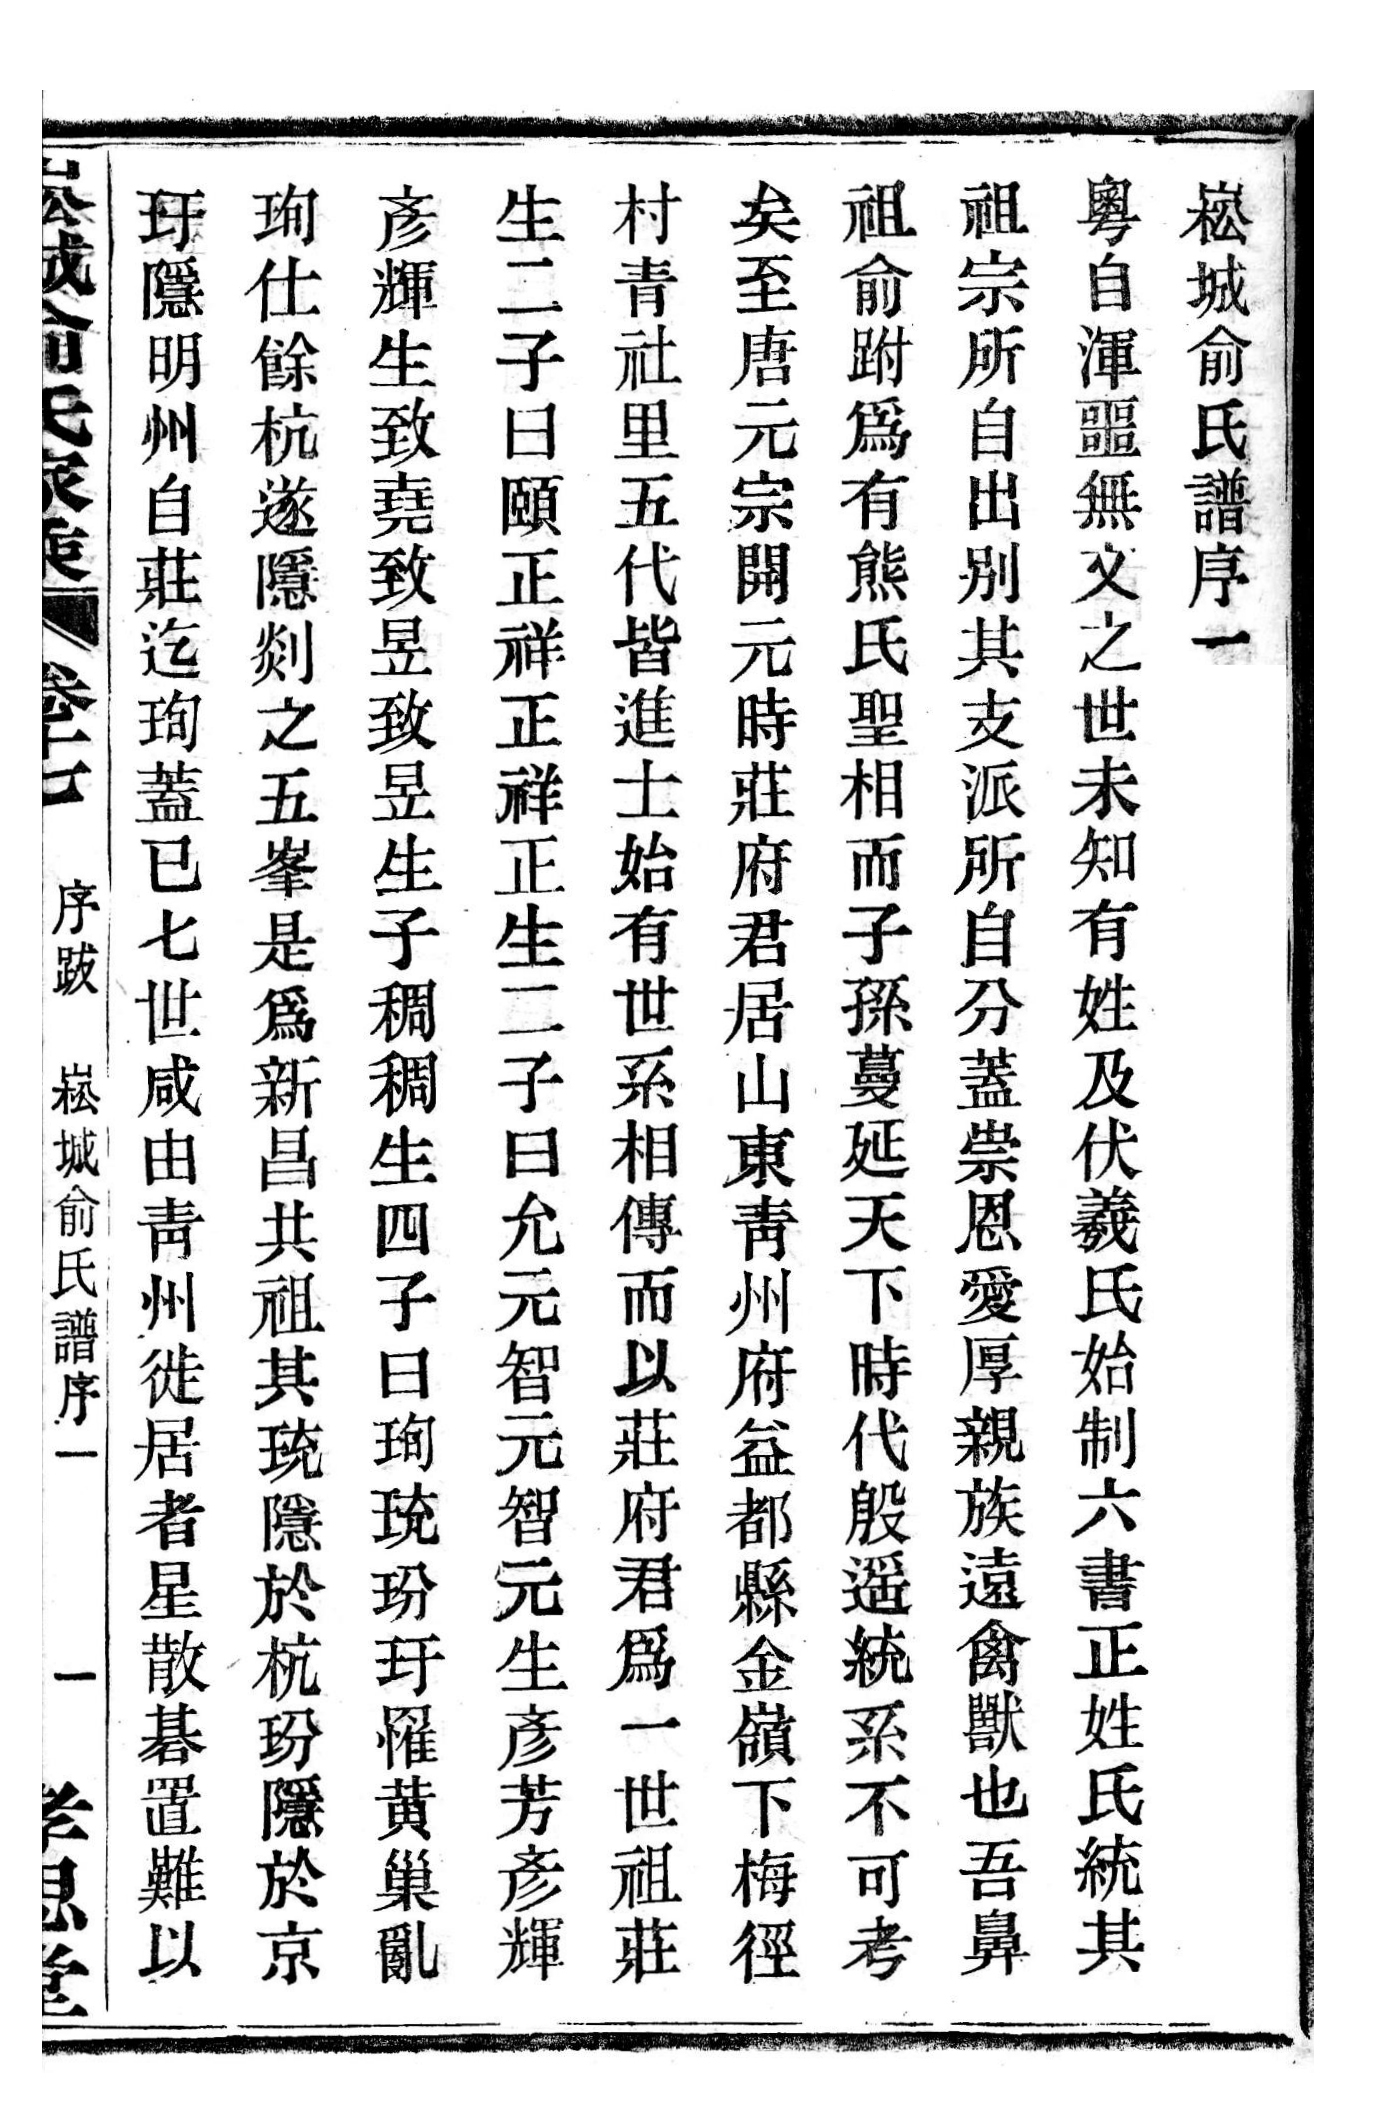 崧城俞氏譜序一
粵自渾噩無文之世未知有姓及伏羲氏始制六書正姓氏統其
祖宗所自出別其支派所自分蓋崇恩愛厚親族遠禽獸也吾鼻
祖俞跗爲有熊氏聖相而子孫蔓延天下時代殷遥統系不可考
矣至唐元宗開元時莊府君居山東靑州府益都縣金嶺下梅徑
村青社里五代皆進士始有世系相傳而以莊府君爲一世祖莊
生二子曰頤正祥正祥正生二子曰允元智元智元生彥芳彥輝
彥輝生致堯致昱致昱生子稠稠生四子曰珣珫玢玗罹黄巢亂
珣仕餘杭遂隱剡之五峯是爲新昌共祖其珫隱於杭玢隱於京
玗隱明州自莊迄珣蓋已七世咸由靑州徙居者星散碁置難以
崧城俞氏家乘 卷十七 序跋 崧城俞氏譜序一 一 孝思堂